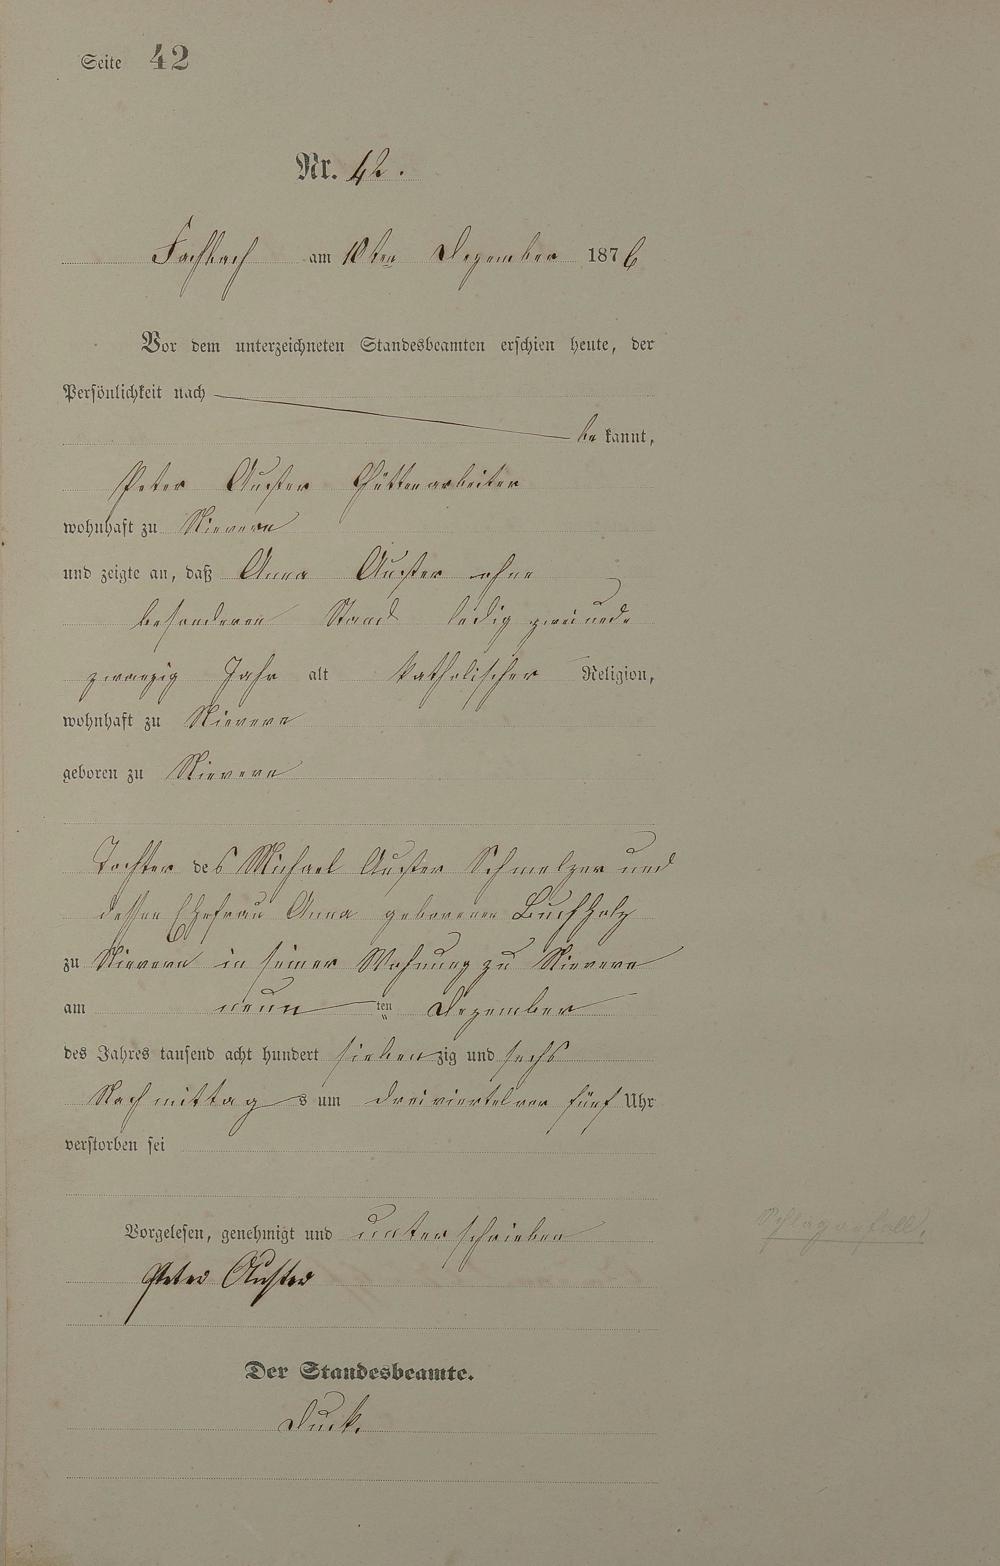 Seite 42
Nr. 42.
Fachbach am 10ten Dezember 1876
Vor dem unterzeichneten Standesbeamten erschien heute, der
Persönlichkeit nach
be kannt,
Peter Auster Hüttenarbeiter
wohnhaft zu Nievern
und zeigte an, daß Anna Auster ohne
besonderen Stand ledig zweiund
zwanzig Jahr alt katholischer Religion,
wohnhaft zu Nievern
geboren zu Nievern
Tochter des Michael Auster Schmelzer und
dessen Ehefrau Anna geborenen Buchholz
zu Nievern in seiner Wohnung zu Nievern
am neun ten Dezember
des Jahres tausend acht hundert siebenzig und sechs
Nachmittags um dreiviertel vor fünf Uhr
verstorben sei
Vorgelesen, genehmigt und unterschrieben
Schlaganfall.
Peter Auster
Der Standesbeamte.